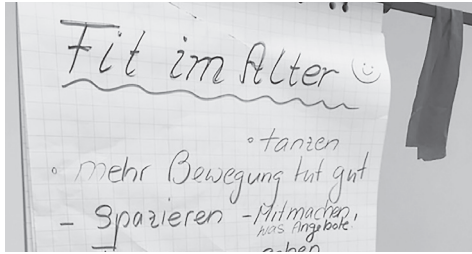 Fit im Alter ☺
• tanzen
• mehr Bewegung tut gut
- Spazieren - Mitmachen,
was Angebote